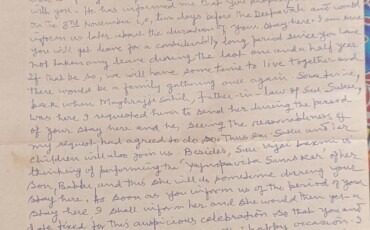 with you. He has informed me that you propose
on the 8th November i.e, two days before the Deepavali and would
inform us later about the duration of your stay here. I am sure
you will get leave for a considerably long period since you have
not taken any leave during the last one and a half year
If that be so, we will have some time to live together and
there would be a family gathering once again. Some time,
back when Sahib, father-in-law of Sou
was here I requested him to send her during the period
of your stay here and he, seeing the reasonableness of
my request had agreed to do so. Thus Sou and her
children will also join us. Besides, Sou Vijai Laxmi is
thinking of performing the Yajnopavita Sanskar of her
son, and this she will do sometime during your
stay here. As soon as you inform us of the period of your
stay here I shall inform her and she would then get a
date fixed for this auspicious celebration so that you and
happy occasion. I